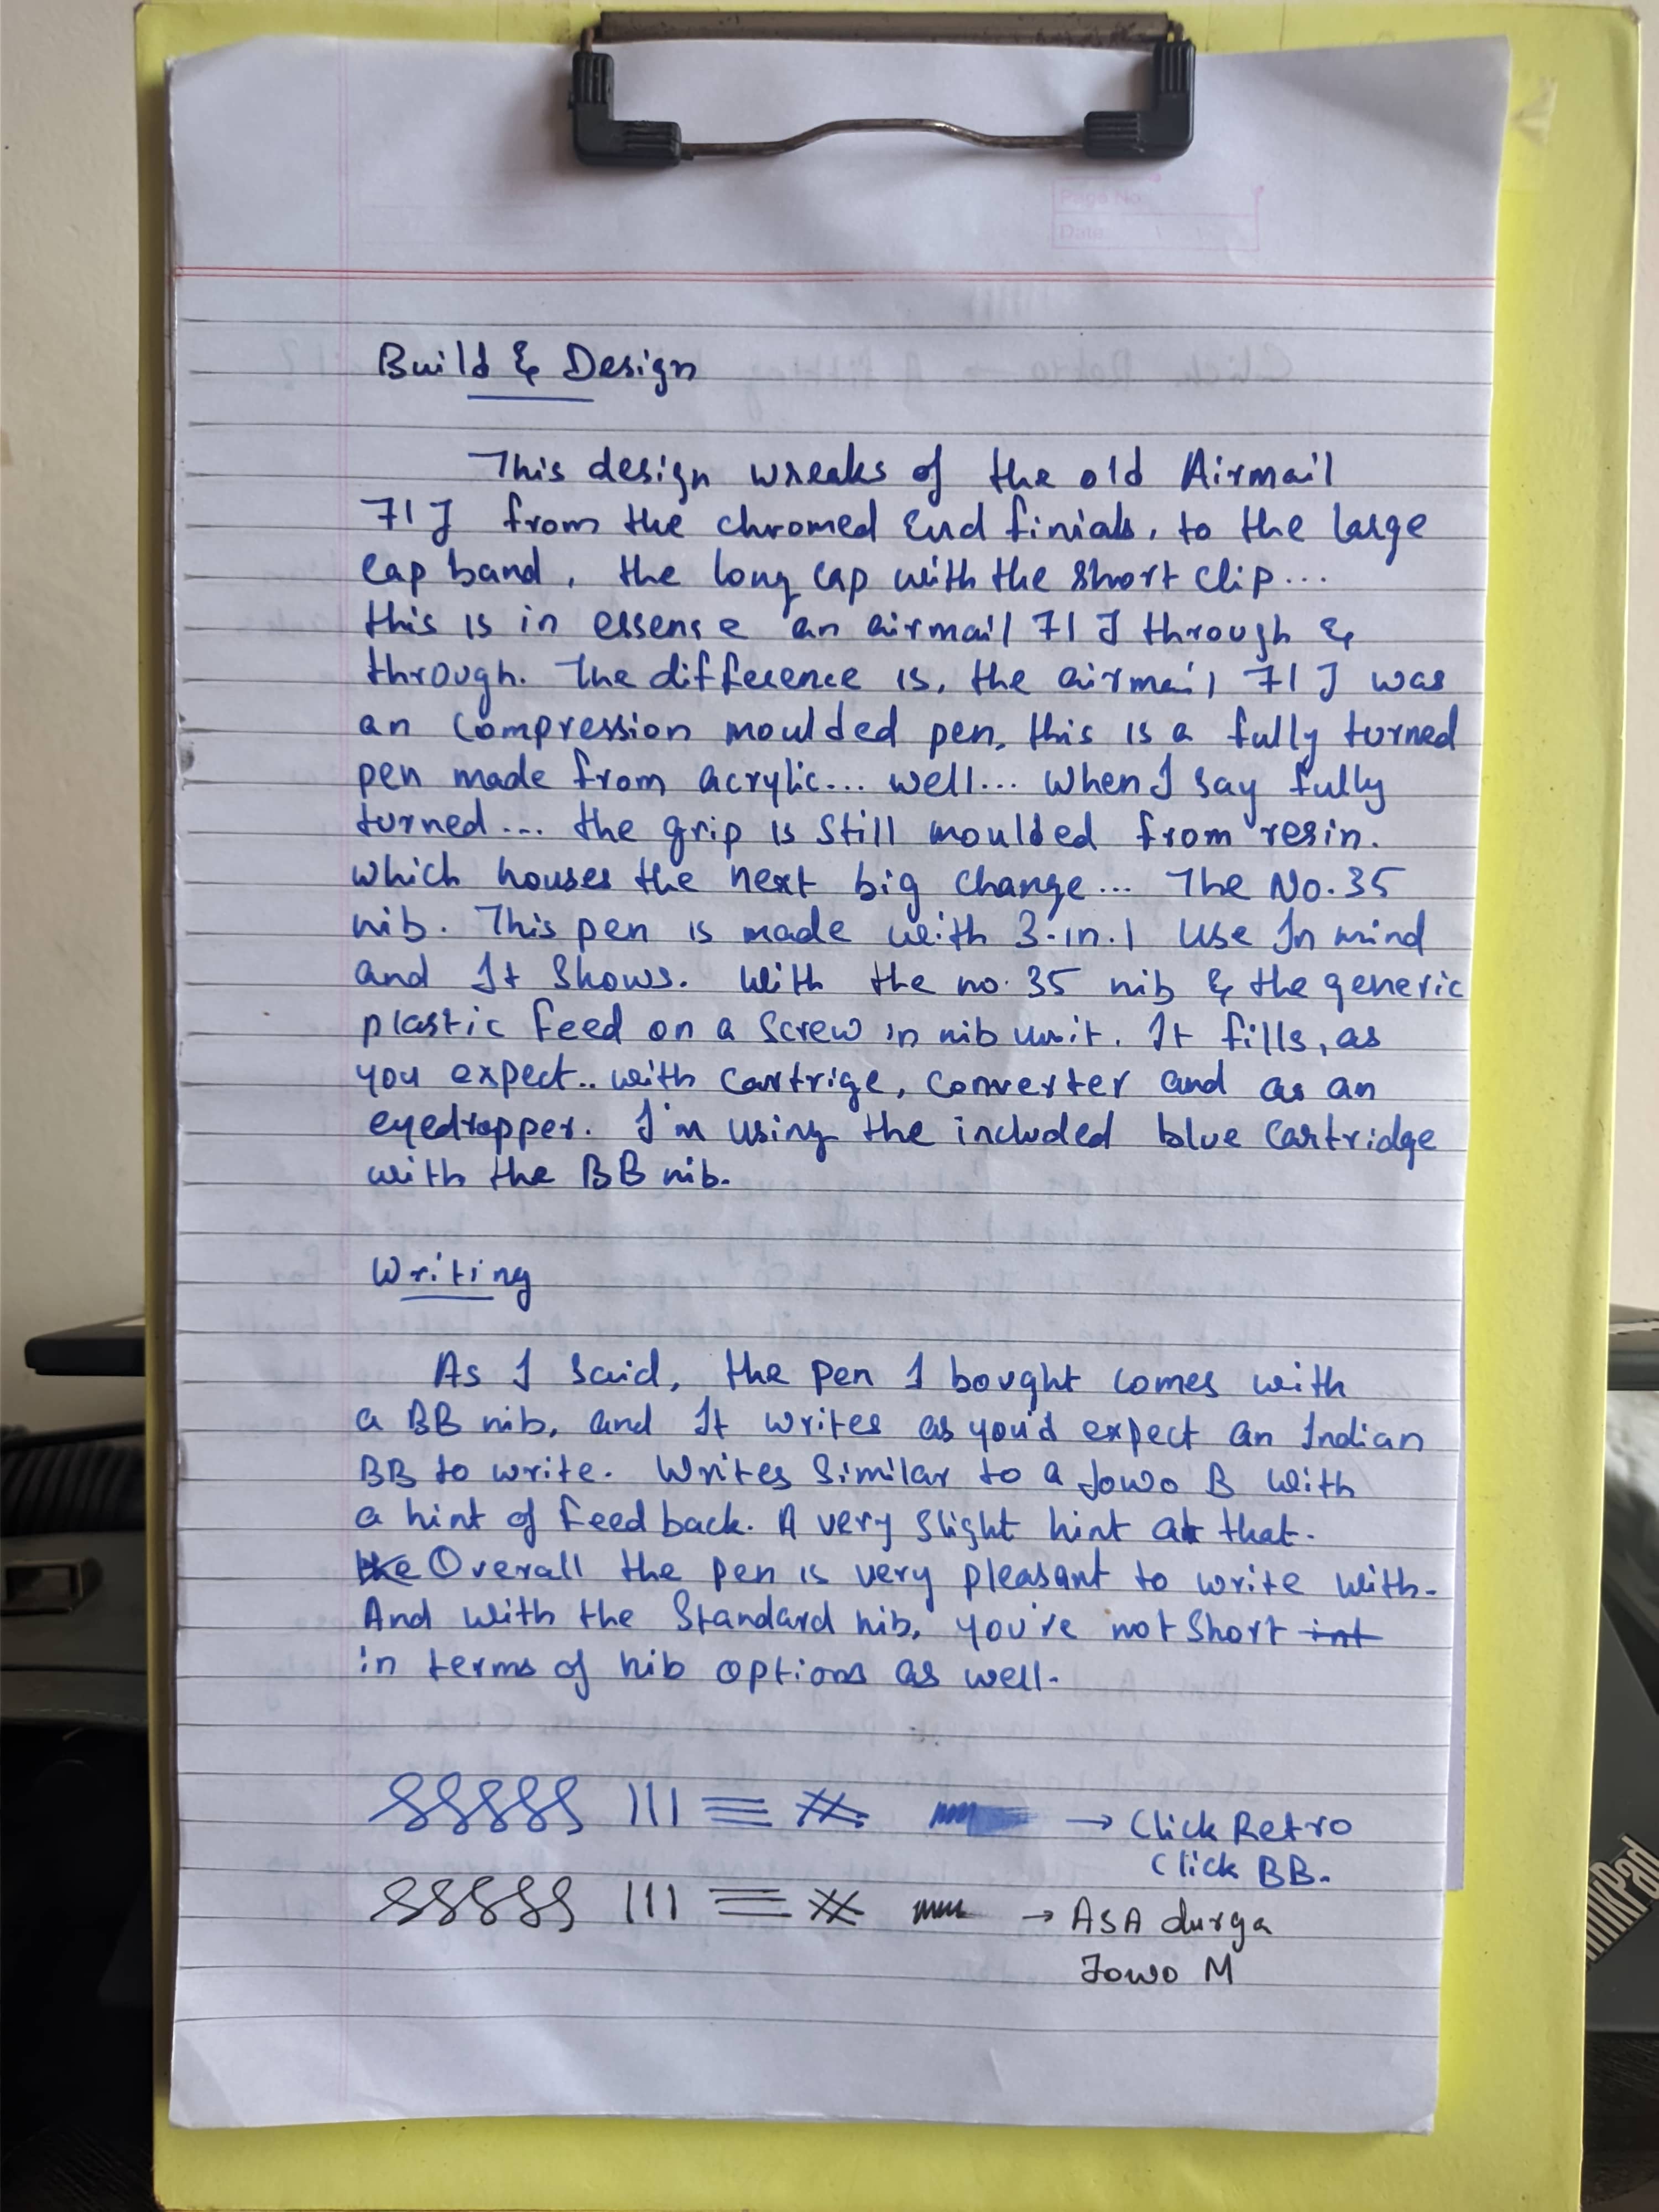 Page No.
Date
Build & Design
This design wreaks of the old Airmail
71J from the chromed End finials, to the large
cap band, the long cap with the short clip...
this is in essense an airmail 71J through &
through. The difference is, the airmail 71J was
an compression moulded pen, this is a fully turned
pen made from acrylic... well... when I say fully
turned... the grip is still moulded from resin.
which houses the next big change... The No.35
nib. This pen is made with 3-in-1 use In mind
and It shows. With the no. 35 nib & the generic
plastic feed on a screw in nib unit. It fills, as
you expect.. with cartrige, converter and as an
eyedropper. I'm using the included blue cartridge
with the BB nib.
Writing
As I said, the pen I bought comes with
a BB nib, and It writes as you'd expect an Indian
BB to write. Writes similar to a Jowo B with
a hint of feedback. A very slight hint at that.
Overall the pen is very pleasant to write with.
And with the Standard nib, you're not short int
in terms of nib options as well.
→ Click Retro
Click BB.
→ ASA durga
Jowo M
ThinkPad